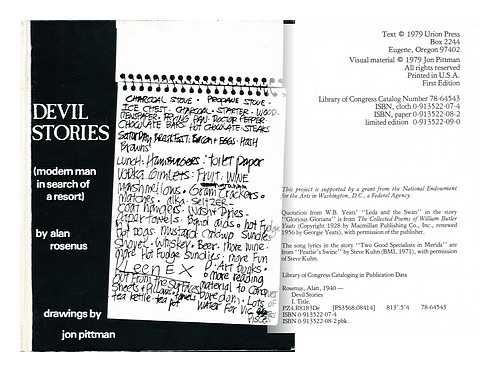 DEVIL
STORIES
(modern man
in search of
a resort)
by alan
rosenus
drawings by
jon pittman
CHARCOAL STOVE - PROPANE STOVE -
ICE CHEST - CHARCOAL - STARTER - WOOD -
NEWSPAPER - FRYING PAN - DOCTOR PEPPER
CHOCOLATE BARS - HOT CHOCOLATE - STEAKS
SATURDAY BREAKFAST: BACON + EGGS - HASH
Browns
Lunch - Hamburgers - toilet paper
Vodka Gimlets: Fruit. WINE
Marshmallows - Graham Crackers -
Matches - alka - SELTZER
Coat hangers - Wash + Dries -
paper towels - Hot Fudge
hot dogs - mustard - Ketchup Sundies
shovel - whiskey - Beer - more wine -
more Hot Fudge Sundies - more Fun
KleenEX
more reading
material to cover
Sheets + Pillows
tea kettle - tea pot
Lots
Water For
Text © 1979 Union Press
Box 2244
Eugene, Oregon 97402
Visual material © 1979 Jon Pittman
All rights reserved
Printed in U.S.A.
First Edition
Library of Congress Catalog Number 78-64543
ISBN, cloth 0-913522-07-4
ISBN, paper 0-913522-08-2
limited edition 0-913522-09-0
This project is supported by a grant from the National Endowment
for the Arts in Washington, D.C., a Federal Agency.
Quotation from W.B. Yeats' "Leda and the Swan" in the story
"Glorious Gloriana" is from The Collected Poems of William Butler
Yeats (Copyright 1928 by Macmillan Publishing Co., Inc., renewed
1956 by George Yeats), with permission of the publisher.
The song lyrics in the story "Two Good Specialists in Merida" are
from "Pearlie's Swine" by Steve Kuhn (BMI, 1971), with permission
of Steve Kuhn.
Library of Congress Cataloging in Publication Data
Rosenus, Alan, 1940—
Devil Stories
I. Title.
PZ4.R8183De [PS3568.O8414] 813'.5'4 78-64543
ISBN 0-913522-07-4
ISBN 0-913522-08-2 pbk.